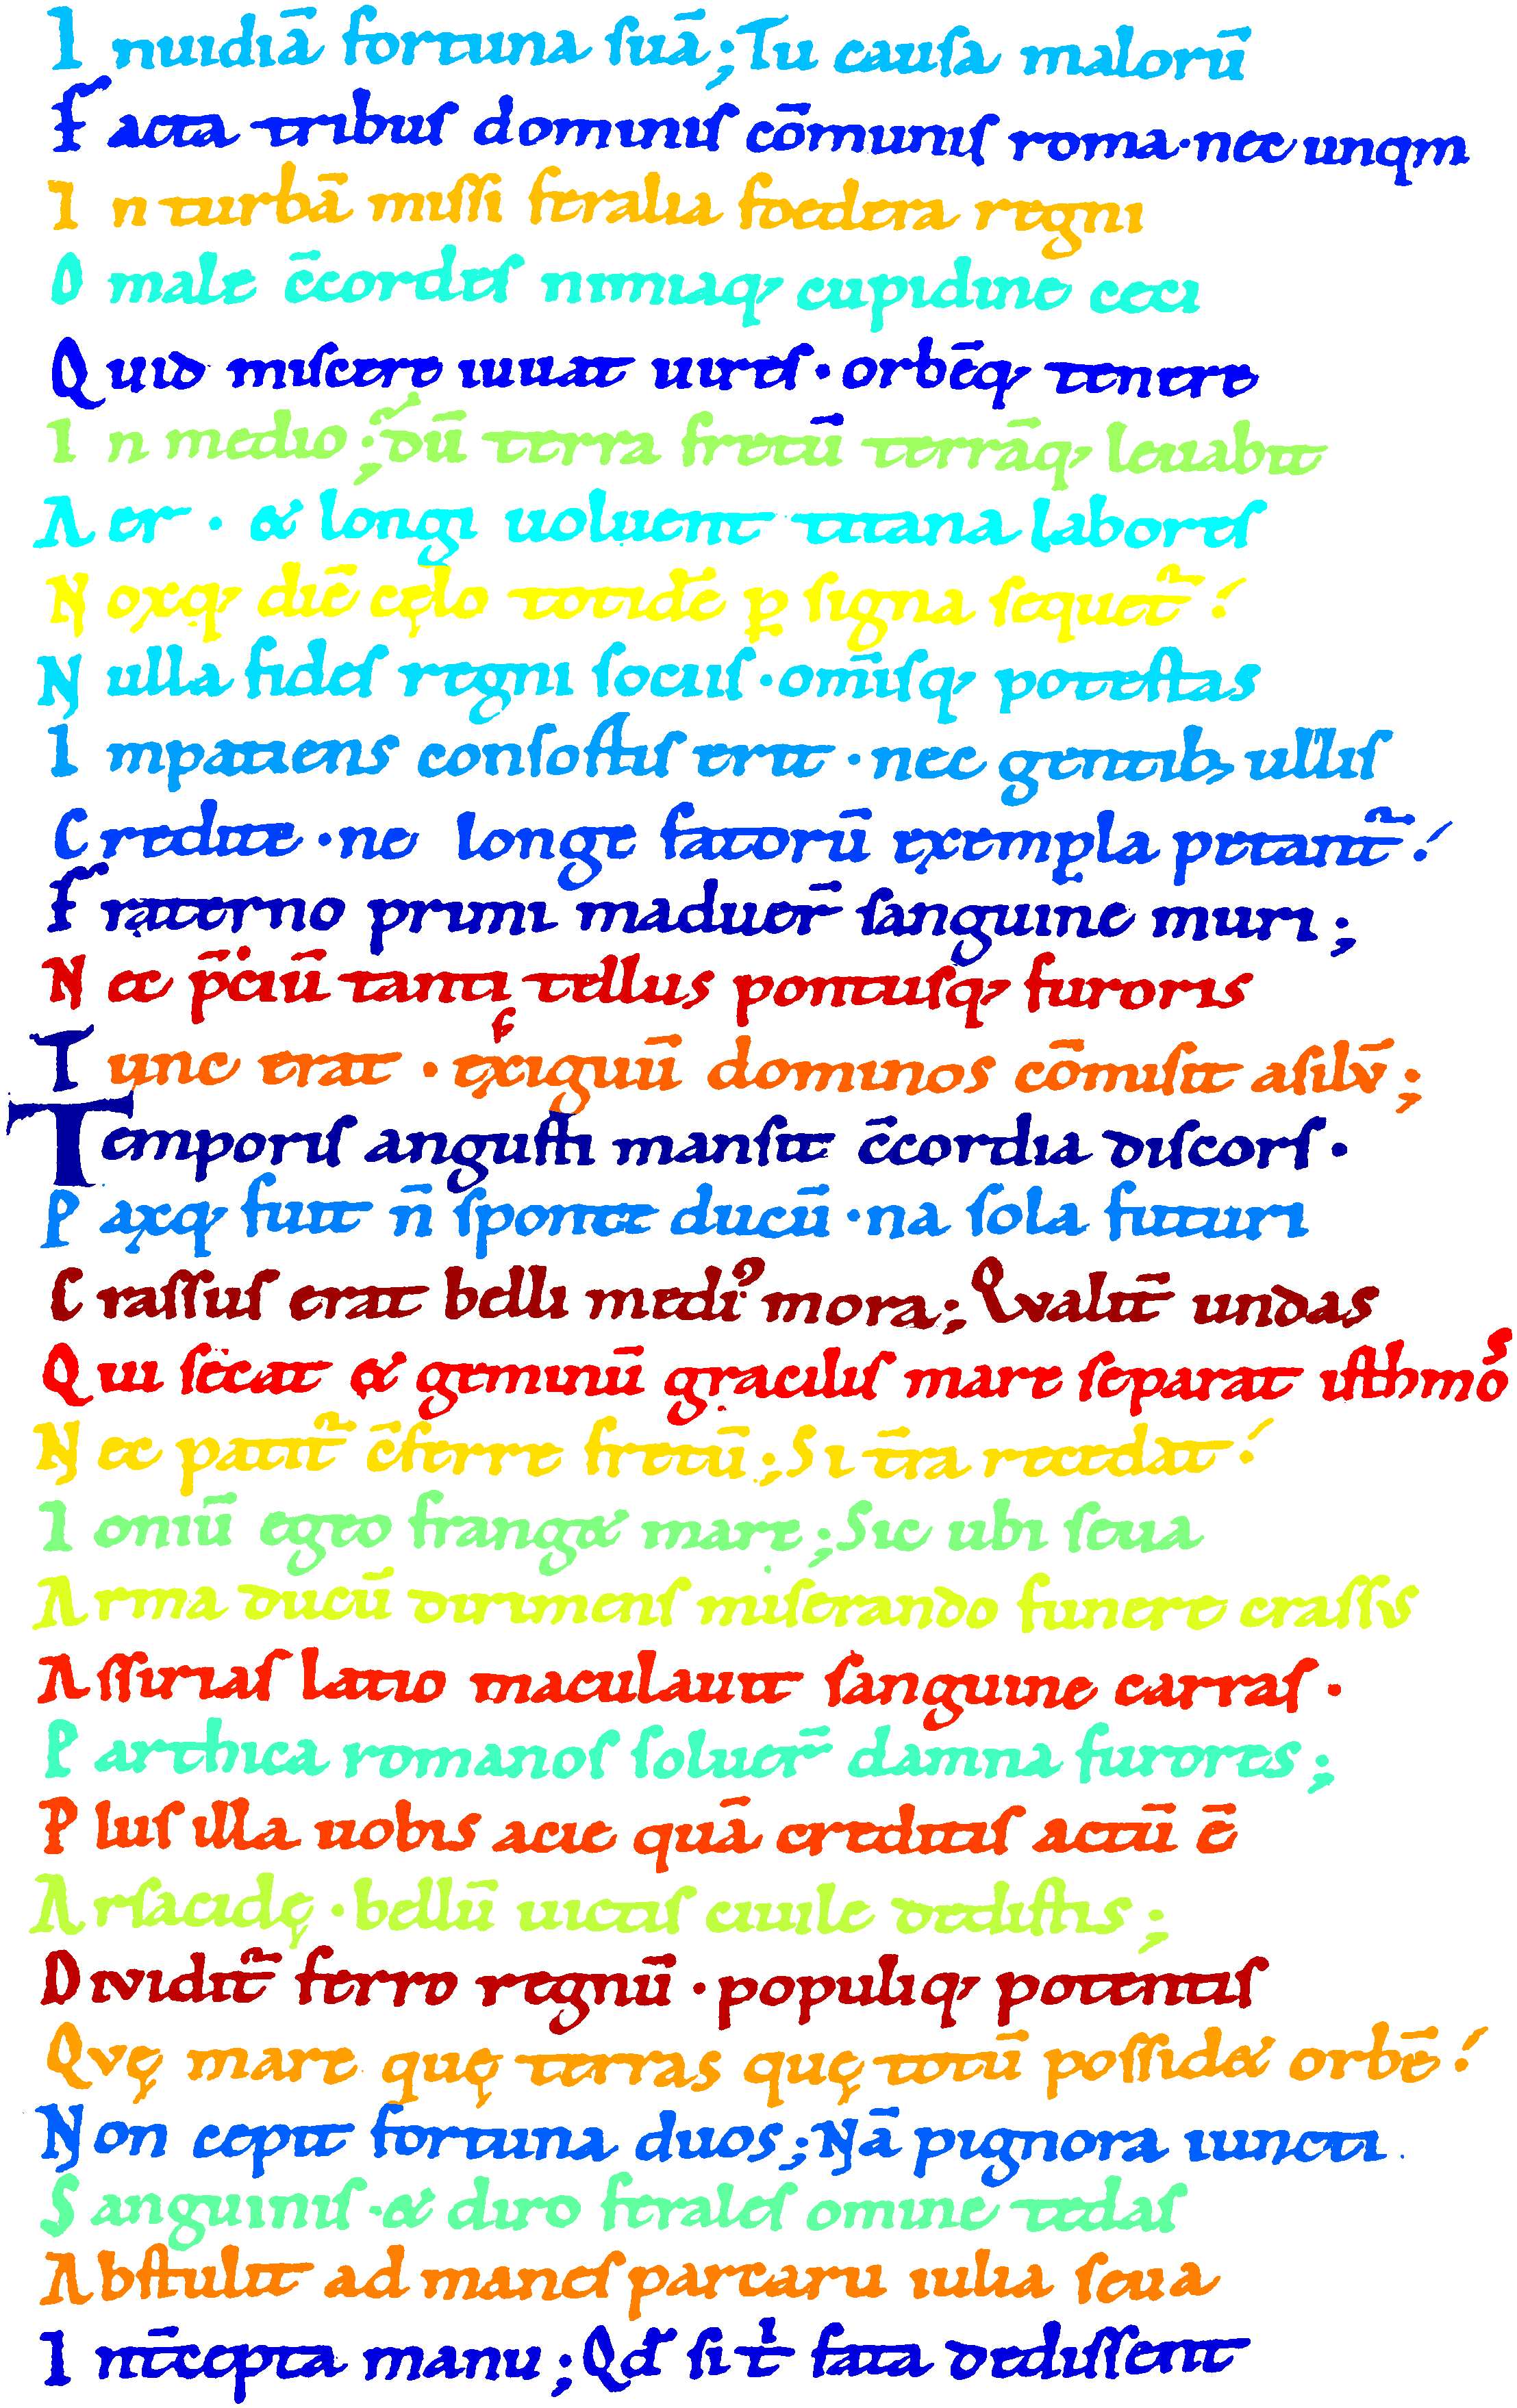 I nuidiā fortuna ſuā; Tu cauſa malorū
F acta tribuſ dominiſ cōmuniſ roma · nec unqm
I n turbā miſſi feralia foedera regni
O male c̄cordeſ nimiaq; cupidine ceci
Q uid miſcere iuuat uireſ · orbēq; tenere
I n medio; dū terra fretū terrāq; leuabit
A er · & longi uoluent titana laboreſ
N oxq; diē cęlo totidē ꝑ ſigna ſequet᷑ !
N ulla fideſ regni ſociiſ · om̄iſq; poteſtas
I mpatienſ conſortiſ erit · nec gentib; ulliſ
C redite · ne longe fatorū exempla petant᷑ !
F raterno primi maduer̄ ſanguine muri ;
N ec p̄ciū tanti tellus pontuſq; furoris
T unc erat · exiguū dominos cōmiſit aſilv̄ ;
Temporiſ anguſti manſit c̄cordia diſcorſ ·
P axq; fuit n̄ ſponte ducū · na ſola futuri
C raſſuſ erat belli mediꝰ mora ; Qvalit̄ undas
Q ui ſecat & geminū graciliſ mare ſeparat iſthmos
N ec patit᷑ c̄ferre fretū ; Si t̄ra recedat !
I oniū egeo frang& mare ; Sic ubi ſeua
A rma ducū dirimenſ miſerando funere craſſvs
A ſſiriaſ latio maculauit ſanguine carraſ ·
P arthica romanoſ ſoluer̄ damna furores ;
P luſ illa uobis acie quā creditiſ actū ē
A rſacidę · bellū uictiſ ciuile dediſtis ;
D ividit᷑ ferro regnū · populiq; potentiſ
Qvę mare quę terras quę totū poſſid& orbē !
N on cepit fortuna duos ; Nā pignora iuncti .
S anguiniſ · & diro feraleſ omine tedaſ
A bſtulit ad maneſ parcaru iulia ſeua
I nt̄cepta manu ; Qđ ſi t᷑ fata dediſſent